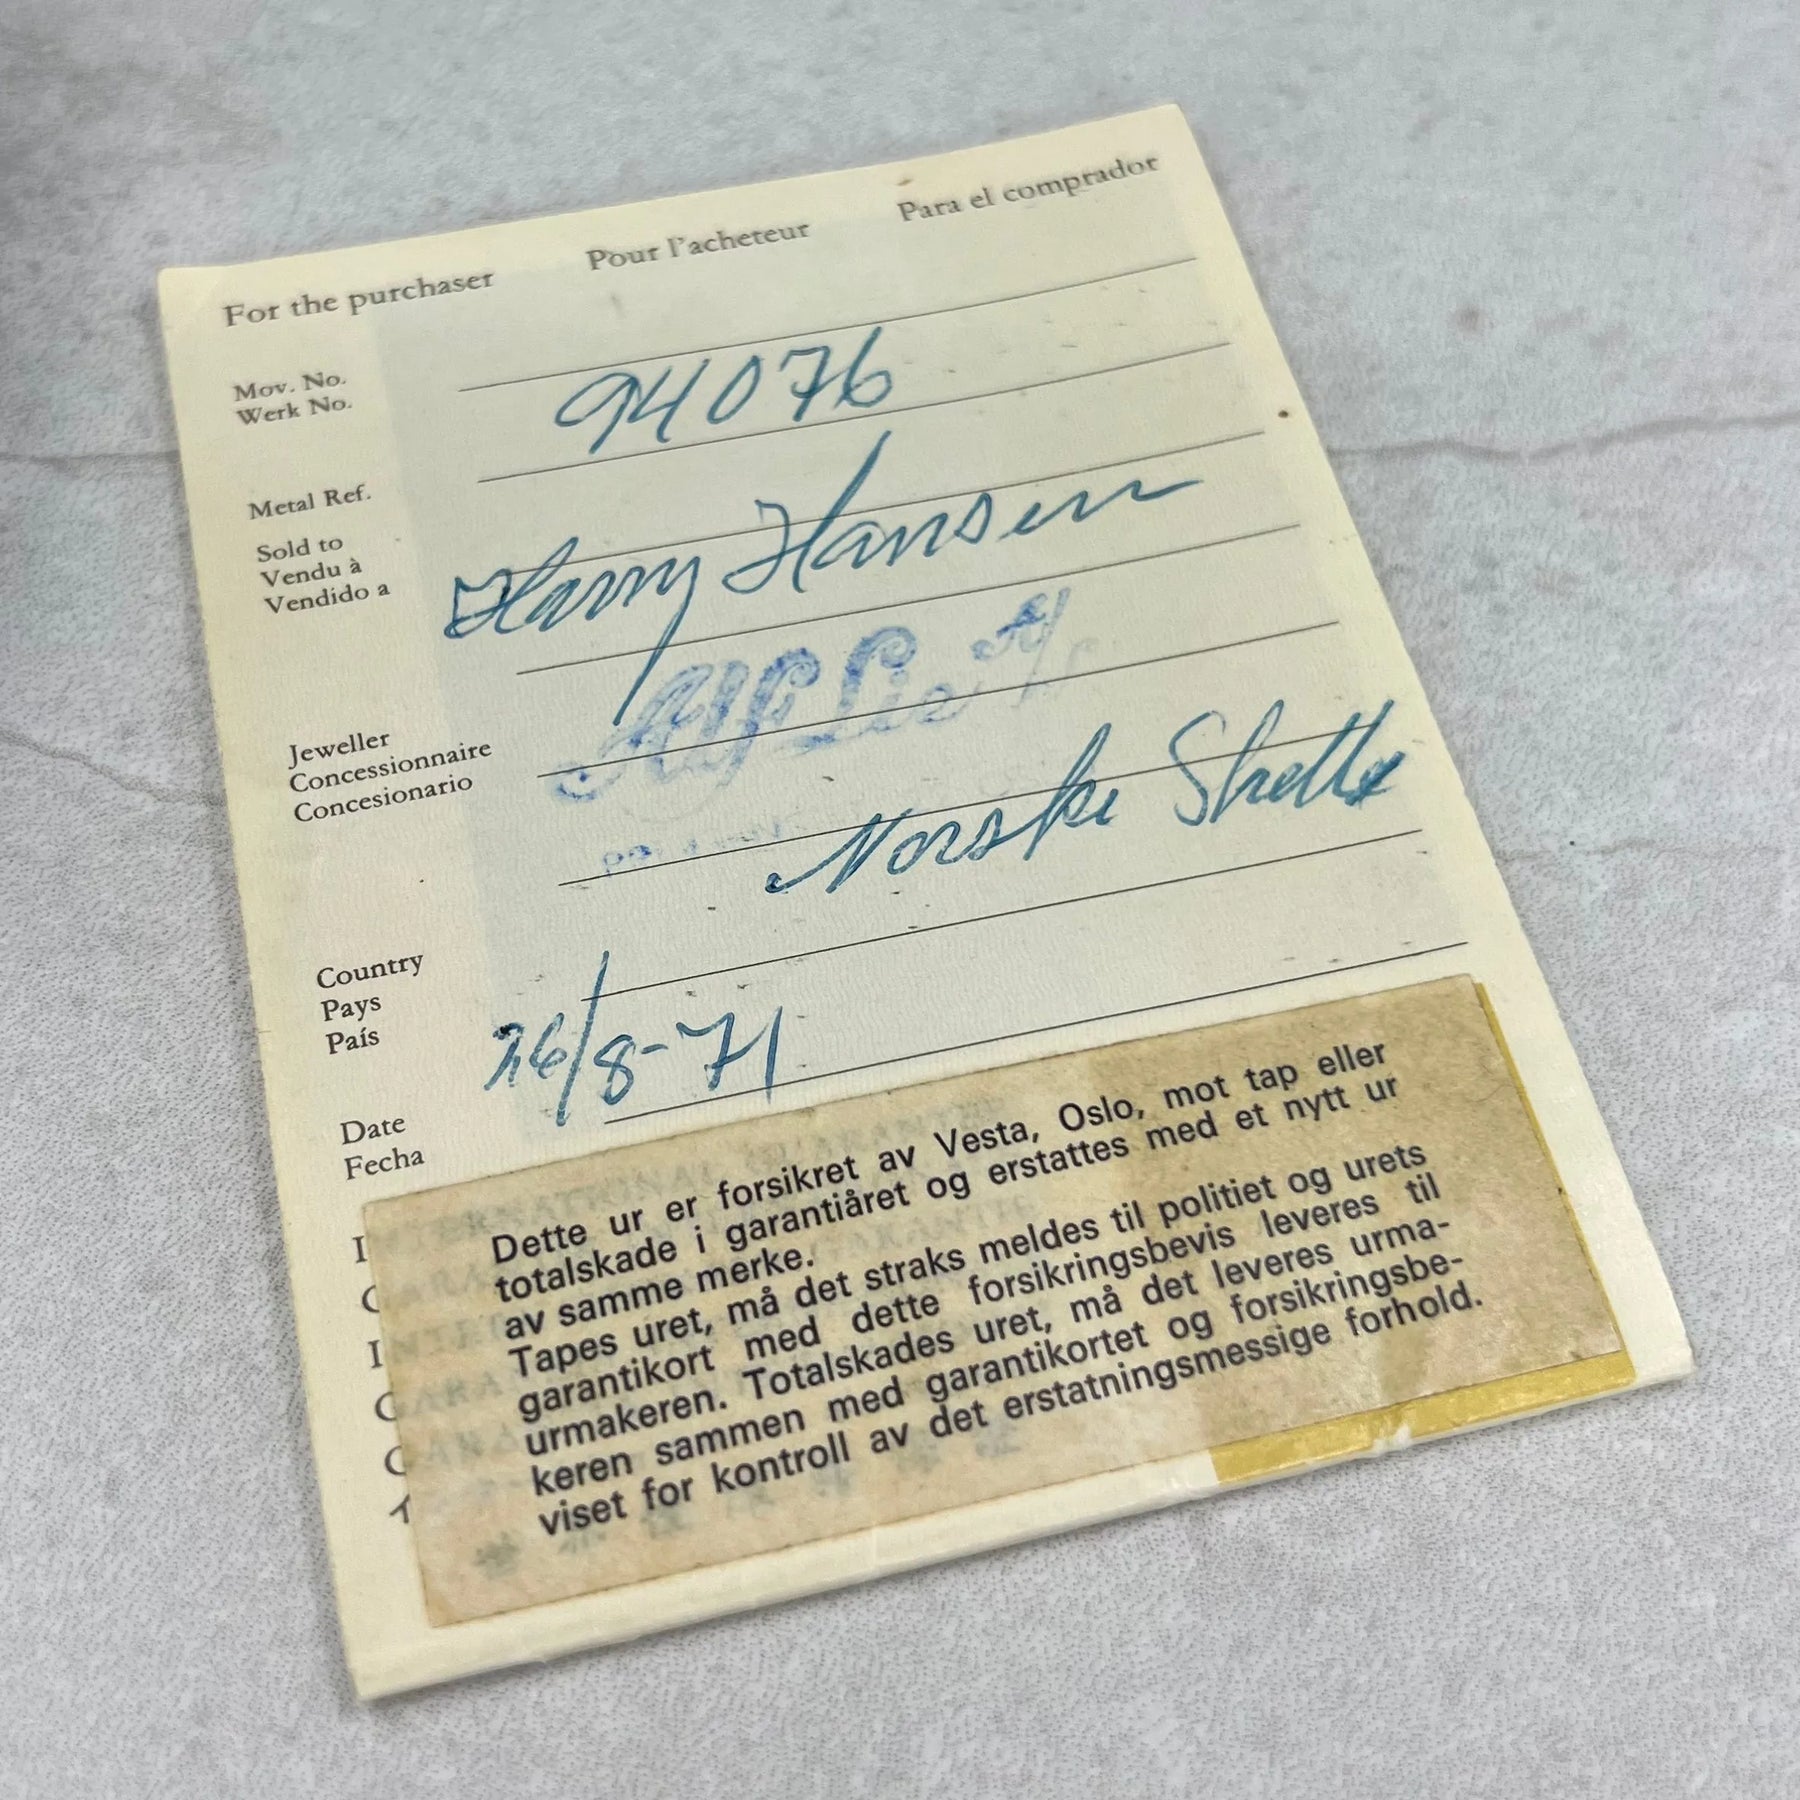 For the purchaser Pour l'acheteur Para el comprador
Mov. No.
Werk No.
94076
Metal Ref.
Sold to
Vendu à
Vendido a
Harry Hansen
Jeweller
Concessionnaire
Concesionario
Alf Lie A/S
Norske Shell
Country
Pays
País
Date
Fecha
26/8-71
Dette ur er forsikret av Vesta, Oslo, mot tap eller
totalskade i garantiåret og erstattes med et nytt ur
av samme merke.
Tapes uret, må det straks meldes til politiet og urets
garantikort med dette forsikringsbevis leveres til
urmakeren. Totalskades uret, må det leveres urma-
keren sammen med garantikortet og forsikringsbe-
viset for kontroll av det erstatningsmessige forhold.